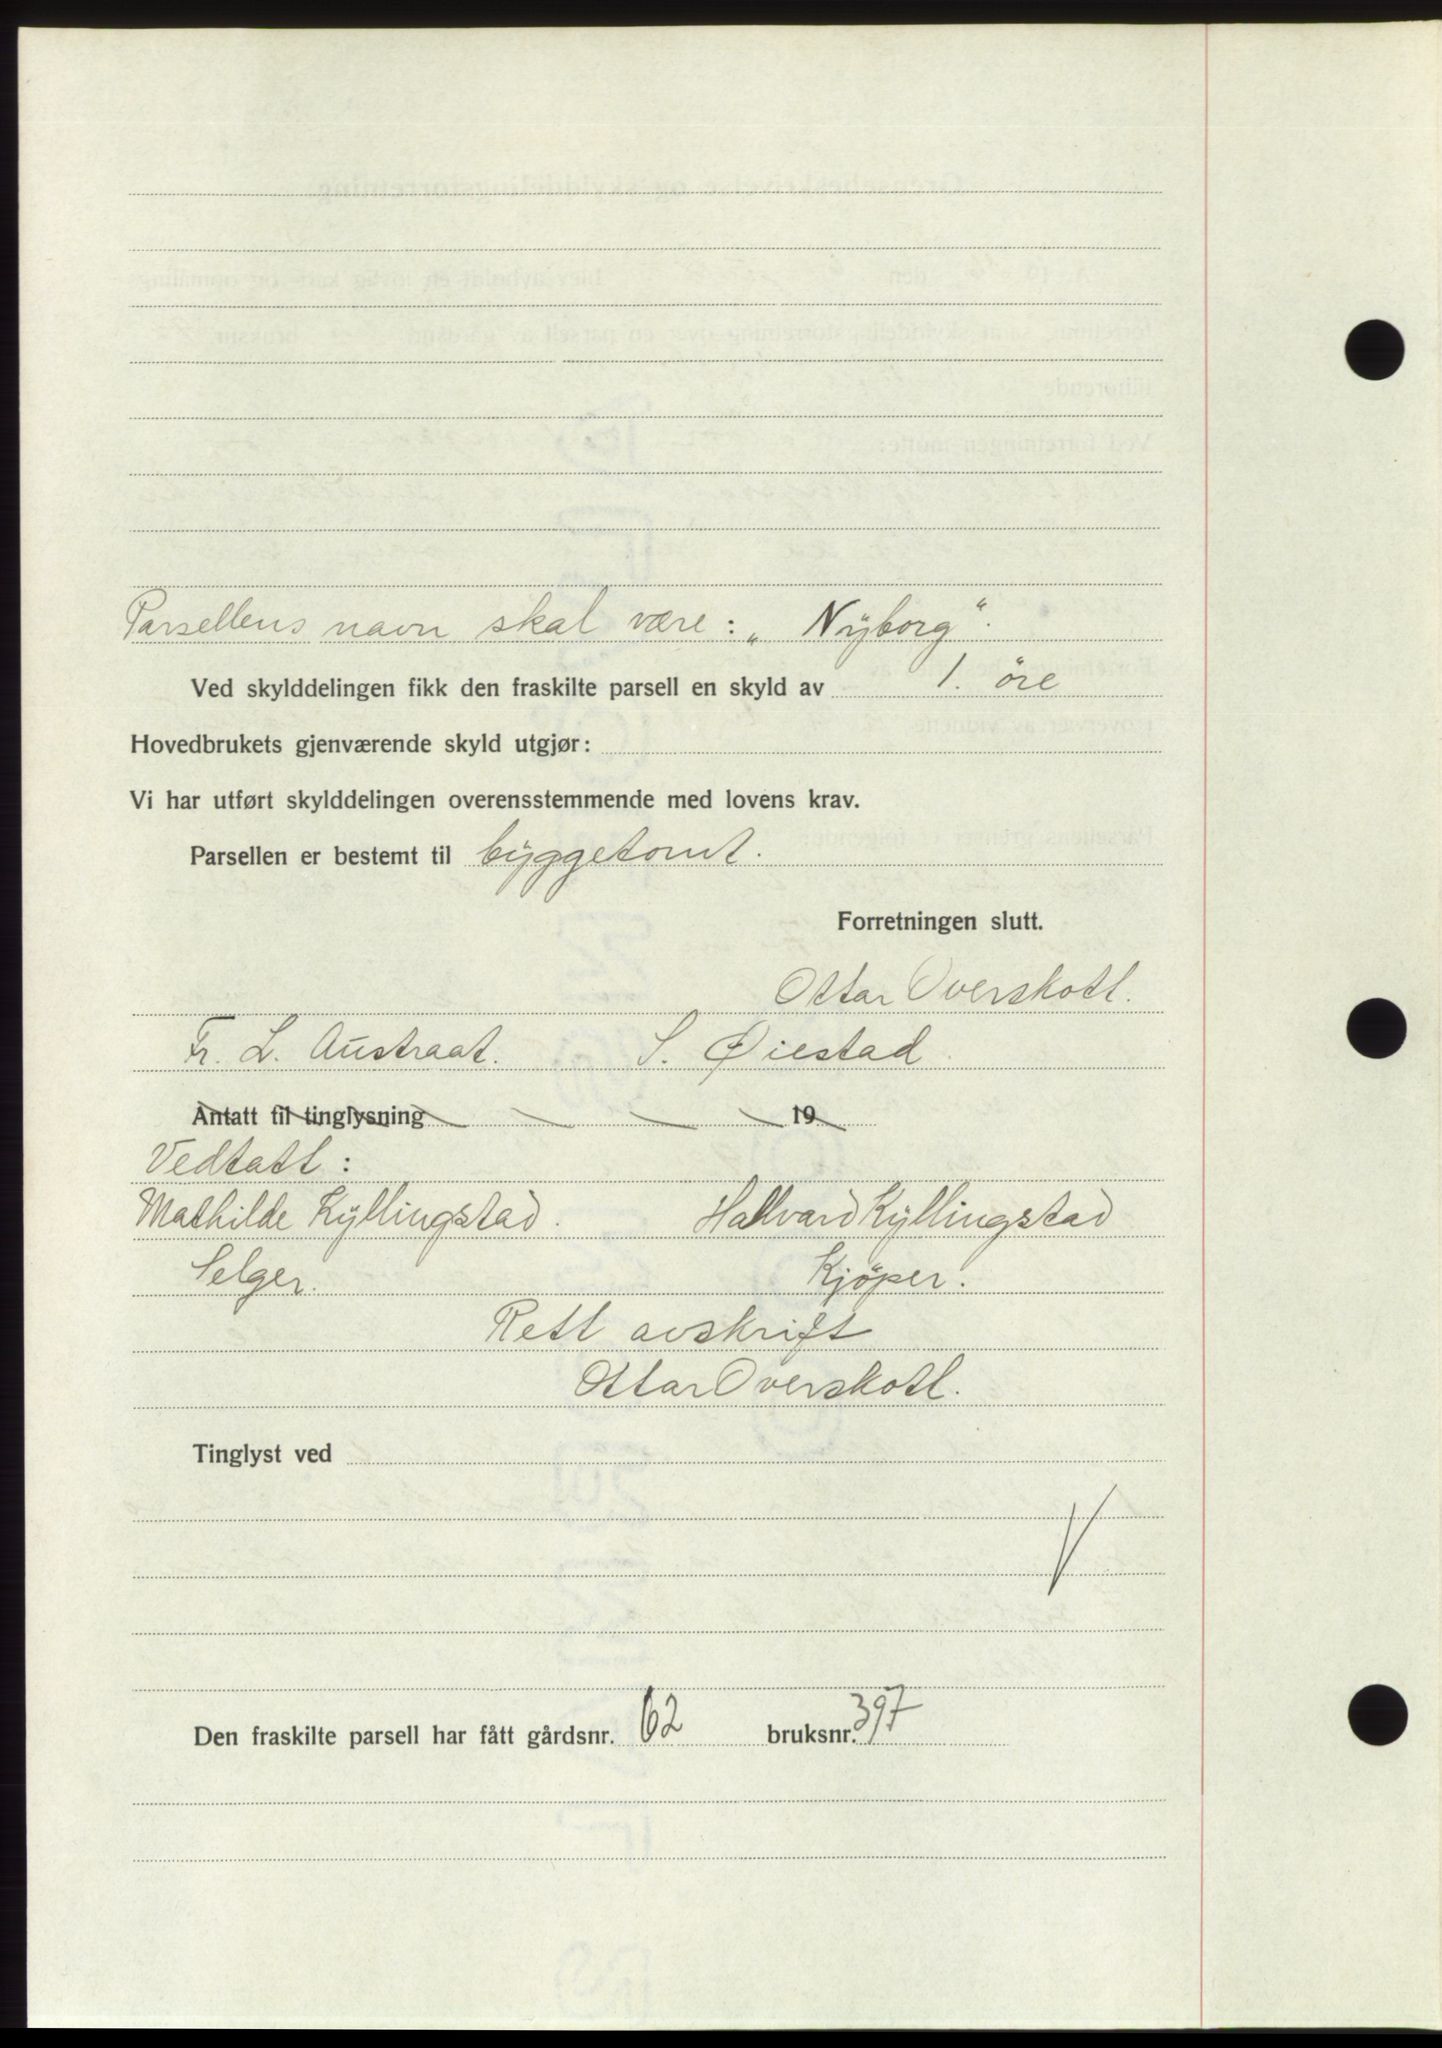 Parsellens navn skal være: „Nÿborg“.
Ved skylddelingen fikk den fraskilte parsell en skyld av 1. öre
Hovedbrukets gjenværende skyld utgjør:
Vi har utført skylddelingen overensstemmende med lovens krav.
Parsellen er bestemt til bÿggetomt.
Forretningen slutt.
Ottar Overskott.
Fr. L. Austraat. S. Øiestad.
Antatt til tinglysning 19
Vedtatt:
Mathilde Kÿllingstad. Hallvard Kÿllingstad
Selger. Kjöper.
Rett avskrift
Ottar Overskott.
Tinglyst ved
Den fraskilte parsell har fått gårdsnr. 62 bruksnr. 397